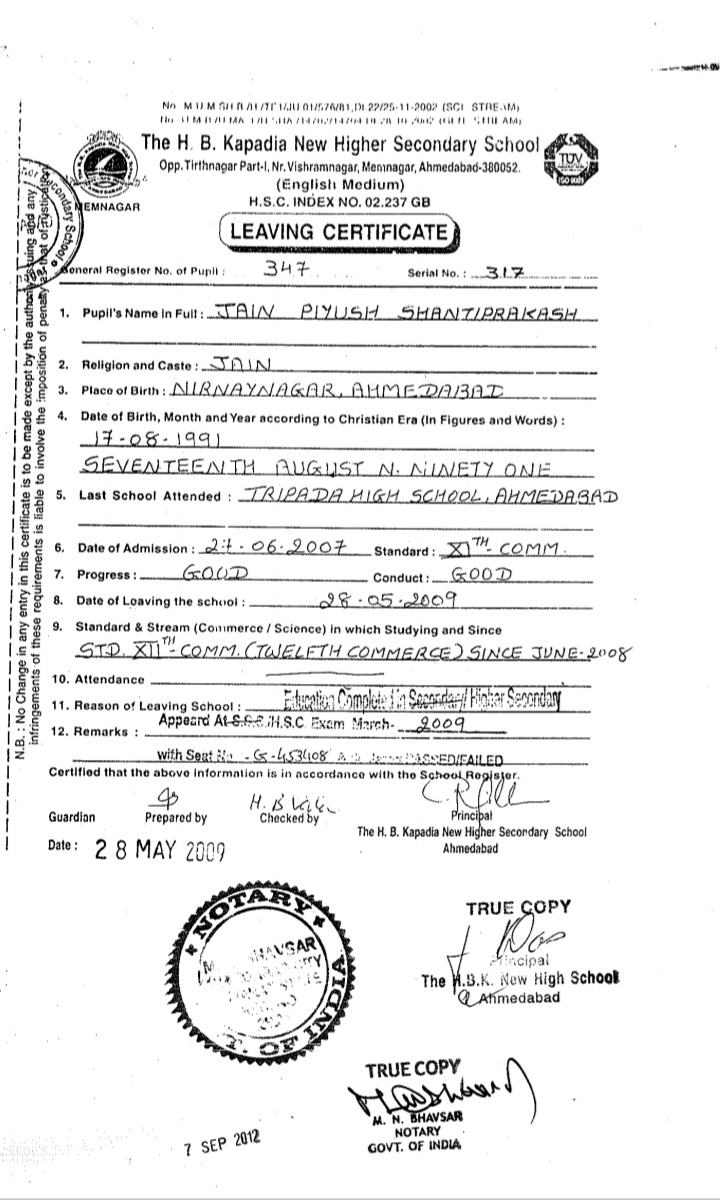 The H. B. Kapadia New Higher Secondary School
Opp. Tirthnagar Part-I, Nr. Vishramnagar, Memnagar, Ahmedabad-380052.
(English Medium)
H.S.C. INDEX NO. 02.237 GB
MEMNAGAR
TUV
ISO 9001
LEAVING CERTIFICATE
General Register No. of Pupil : 347 Serial No. : 317
1. Pupil's Name in Full : JAIN PIYUSH SHANTIPRAKASH
2. Religion and Caste : JAIN
3. Place of Birth : NIRNAYNAGAR, AHMEDABAD
4. Date of Birth, Month and Year according to Christian Era (In Figures and Words) :
17-08-1991
SEVENTEENTH AUGUST N. NINETY ONE
5. Last School Attended : TRIPADA HIGH SCHOOL, AHMEDABAD
6. Date of Admission : 27.06.2007 Standard : XITH COMM.
7. Progress : GOOD Conduct : GOOD
8. Date of Leaving the school : 28-05-2009
9. Standard & Stream (Commerce / Science) in which Studying and Since
STD. XIITH COMM. (TWELFTH COMMERCE) SINCE JUNE-2008
10. Attendance
11. Reason of Leaving School : Education Complete in Secondary/Higher Secondary
12. Remarks : Appeard At S.S.C./H.S.C Exam March- 2009
with Seat No - G-453408 PASSED/FAILED
Certified that the above information is in accordance with the School Register.
Guardian Prepared by Checked by Principal
The H. B. Kapadia New Higher Secondary School
Ahmedabad
Date : 28 MAY 2009
N.B. : No Change in any entry in this certificate is to be made except by the authority issuing and any
infringements of these requirements is liable to involve the imposition of penalty as that of
Secondary School
NOTARY
BHAVSAR
T. OF INDIA
TRUE COPY
Principal
The H.B.K. New High School
Ahmedabad
TRUE COPY
M. N. BHAVSAR
NOTARY
GOVT. OF INDIA
7 SEP 2012